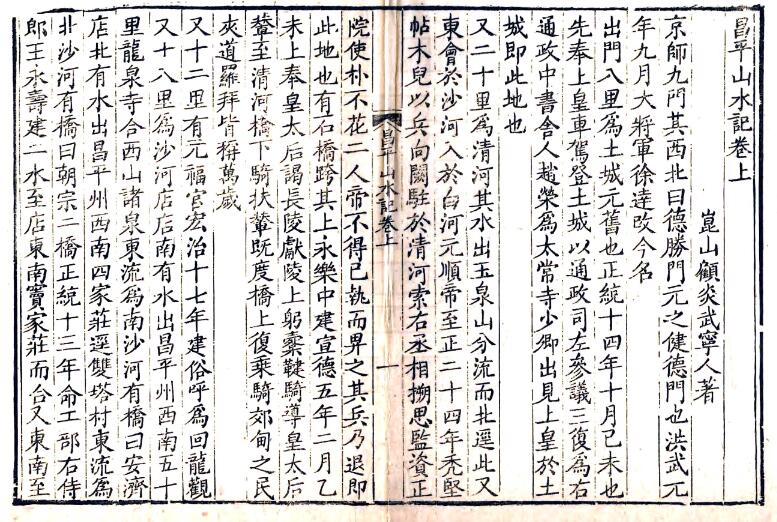 昌平山水記卷上
崑山顧炎武寧人著
京師九門其西北曰德勝門元之健德門也洪武元
年九月大將軍徐逹攺今名
出門八里爲土城元舊也正統十四年十月己未也
先奉上皇車駕登土城以通政司左參議三復爲右
通政中書舍人趙榮爲太常寺少卿出見上皇於土
城即此地也
又二十里爲清河其水出玉泉山分流而北逕此又
東會於沙河入於白河元順帝至正二十四年禿堅
帖木兒以兵向闕駐於清河索右丞相搠思監資正
昌平山水記卷上 一
院使朴不花二人帝不得已執而畀之其兵乃退即
此地也有石橋跨其上永樂中建宣德五年二月乙
未上奉皇太后謁長陵獻陵上躬櫜鞬騎導皇太后
輦至清河橋下騎扶輦既度橋上復乗騎郊甸之民
夾道羅拜皆稱萬歲
又十二里有元福宮宏治十七年建俗呼爲回龍觀
又十八里爲沙河店店南有水出昌平州西南五十
里龍泉寺合西山諸泉東流爲南沙河有橋曰安濟
店北有水出昌平州西南四家莊逕雙塔村東流爲
北沙河有橋曰朝宗二橋正統十三年命工部右侍
郎王永壽建二水至店東南竇家莊而合又東南至